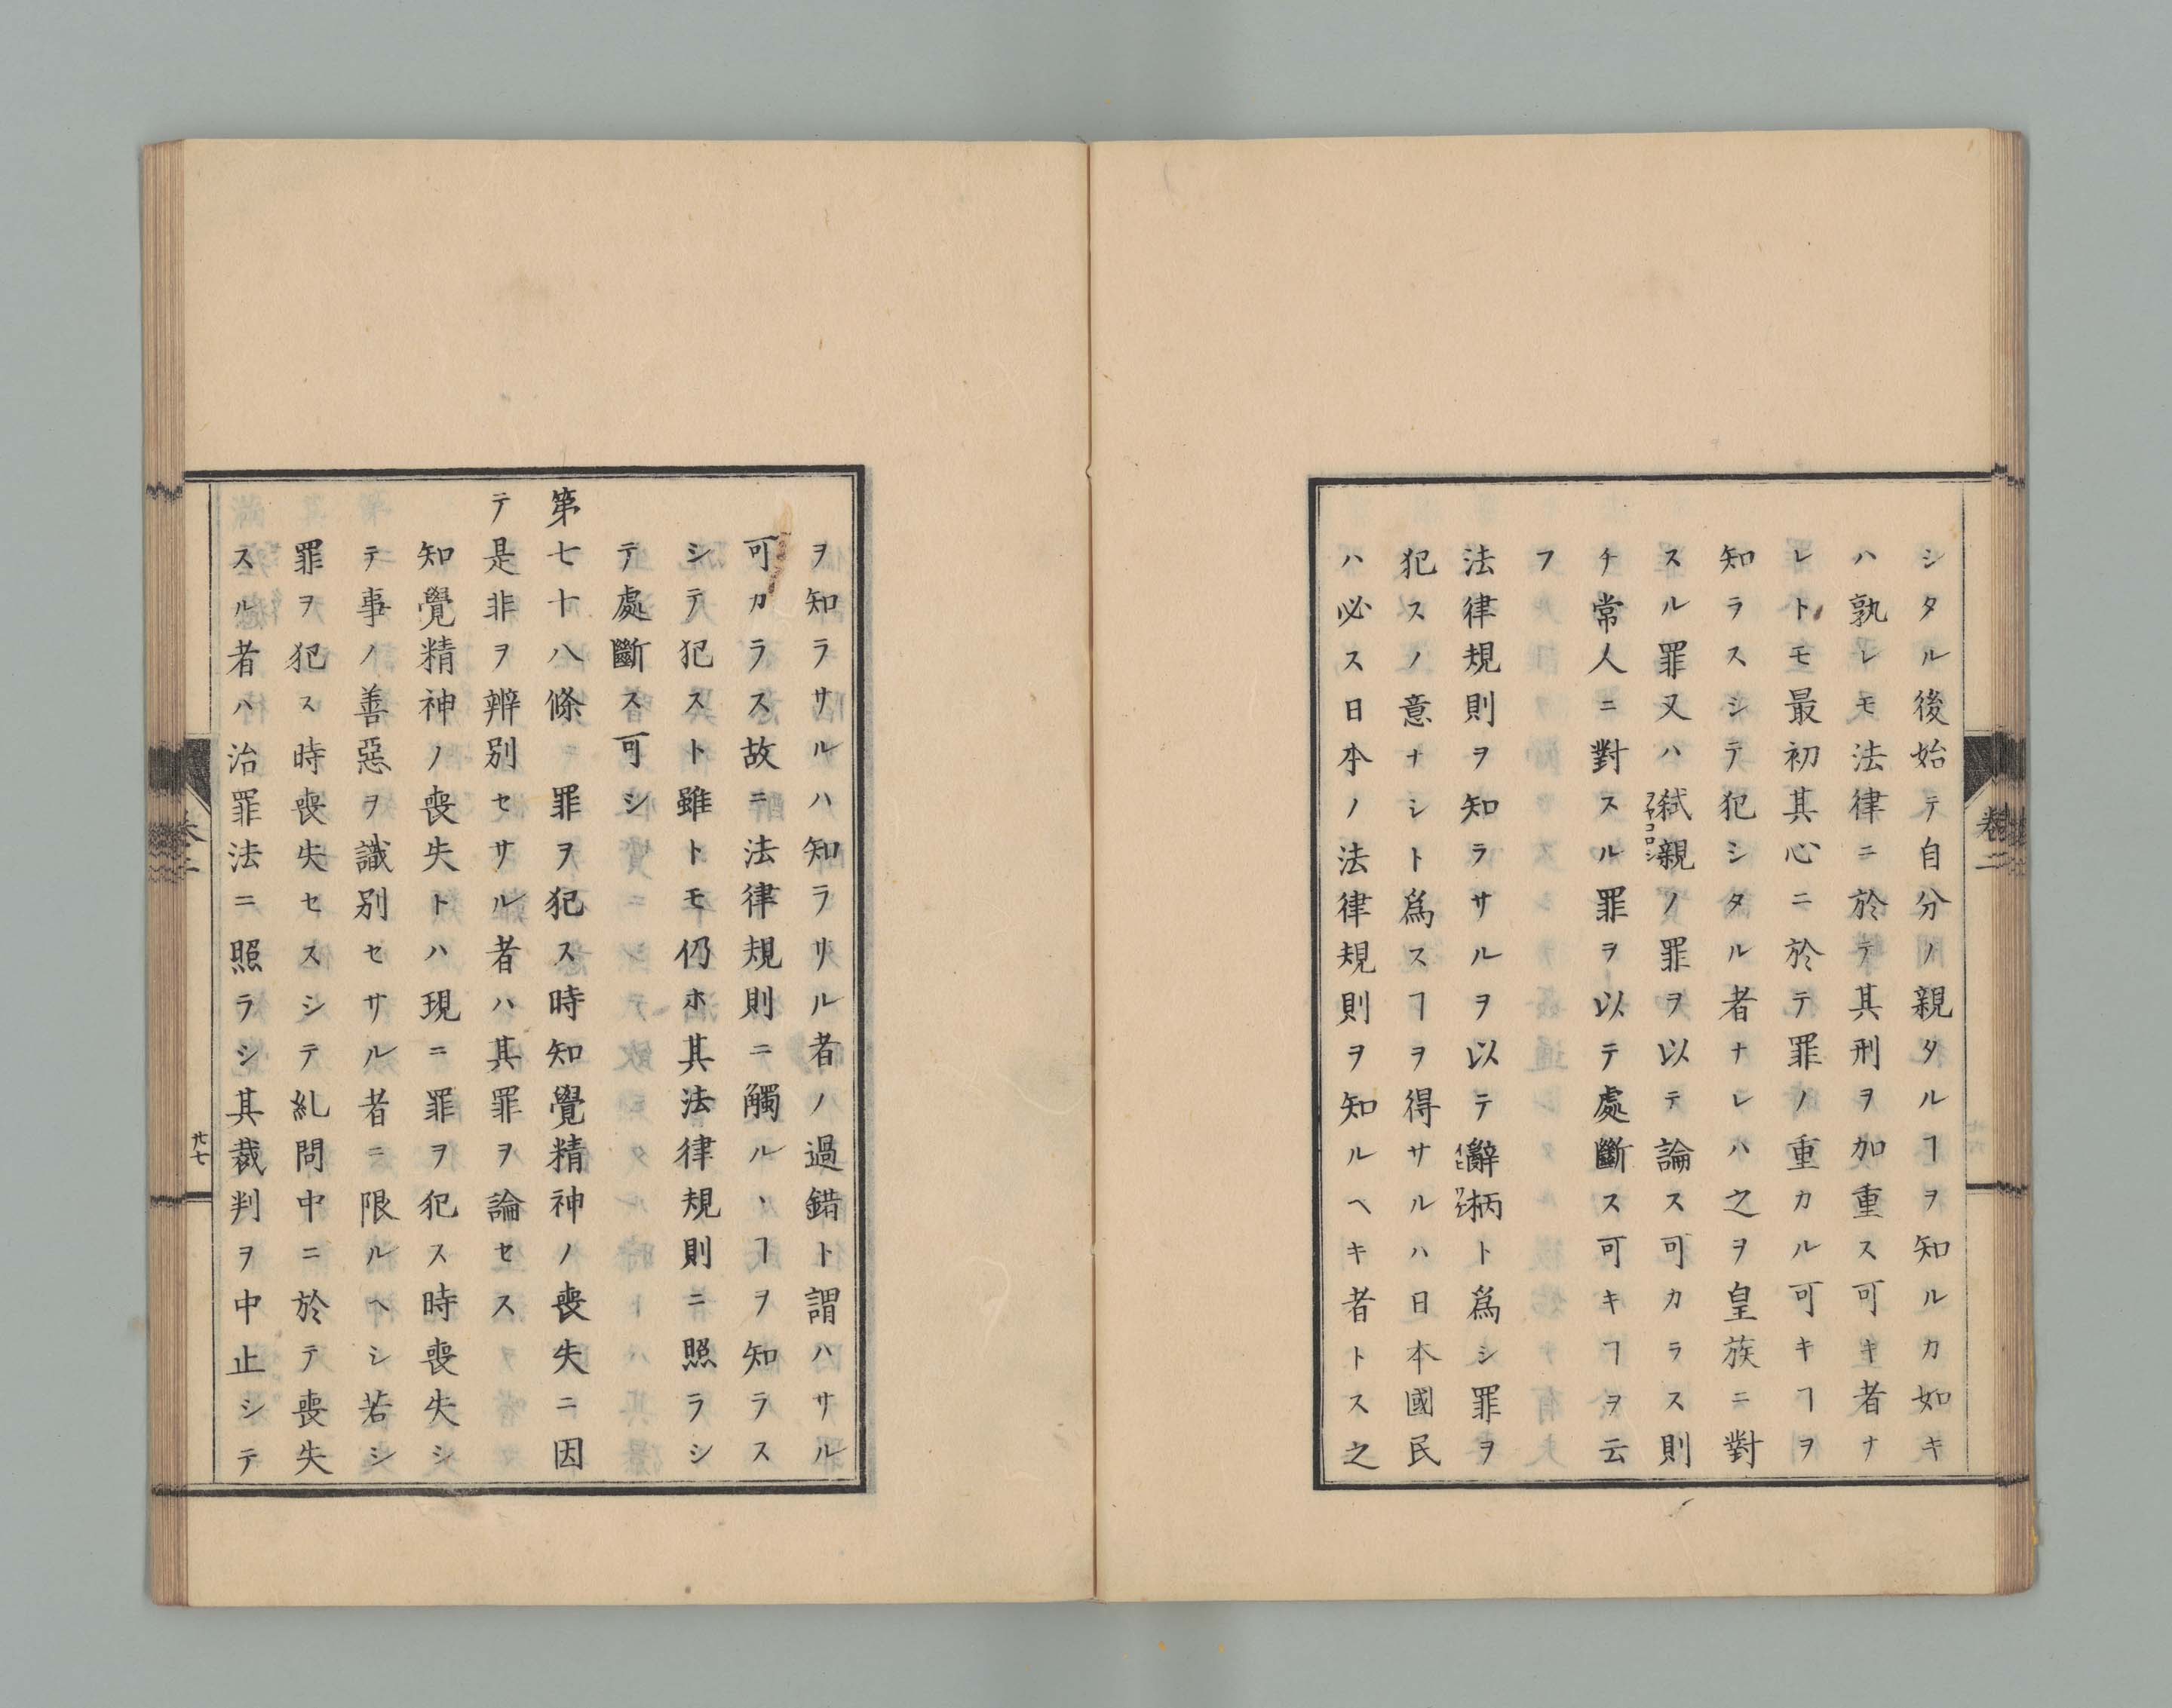 シタル後始テ自分ノ親タルヿヲ知ルカ如キ
ハ孰レモ法律ニ於テ其刑ヲ加重ス可キ者ナ
レトモ最初其心ニ於テ罪ノ重カル可キヿヲ
知ラスシテ犯シタル者ナレハ之ヲ皇族ニ對
スル罪又ハ弑親ノ罪ヲ以テ論ス可カラス則
チ常人ニ對スル罪ヲ以テ處斷ス可キヿヲ云
フ
法律規則ヲ知ラサルヲ以テ辭柄ト爲シ罪ヲ
犯スノ意ナシト爲スヿヲ得サルハ日本國民
ハ必ス日本ノ法律規則ヲ知ルヘキ者トス之
卷二
ヲ知ラサルハ知ラサル者ノ過錯ト謂ハサル
可カラス故ニ法律規則ニ觸ルヽヿヲ知ラス
シテ犯スト雖トモ仍ホ其法律規則ニ照ラシ
テ處斷ス可シ
第七十八條 罪ヲ犯ス時知覺精神ノ喪失ニ因
テ是非ヲ辨別セサル者ハ其罪ヲ論セス
知覺精神ノ喪失トハ現ニ罪ヲ犯ス時喪失シ
テ事ノ善惡ヲ識別セサル者ニ限ルヘシ若シ
罪ヲ犯ス時喪失セスシテ糺問中ニ於テ喪失
スル者ハ治罪法ニ照ラシ其裁判ヲ中止シテ
廿七